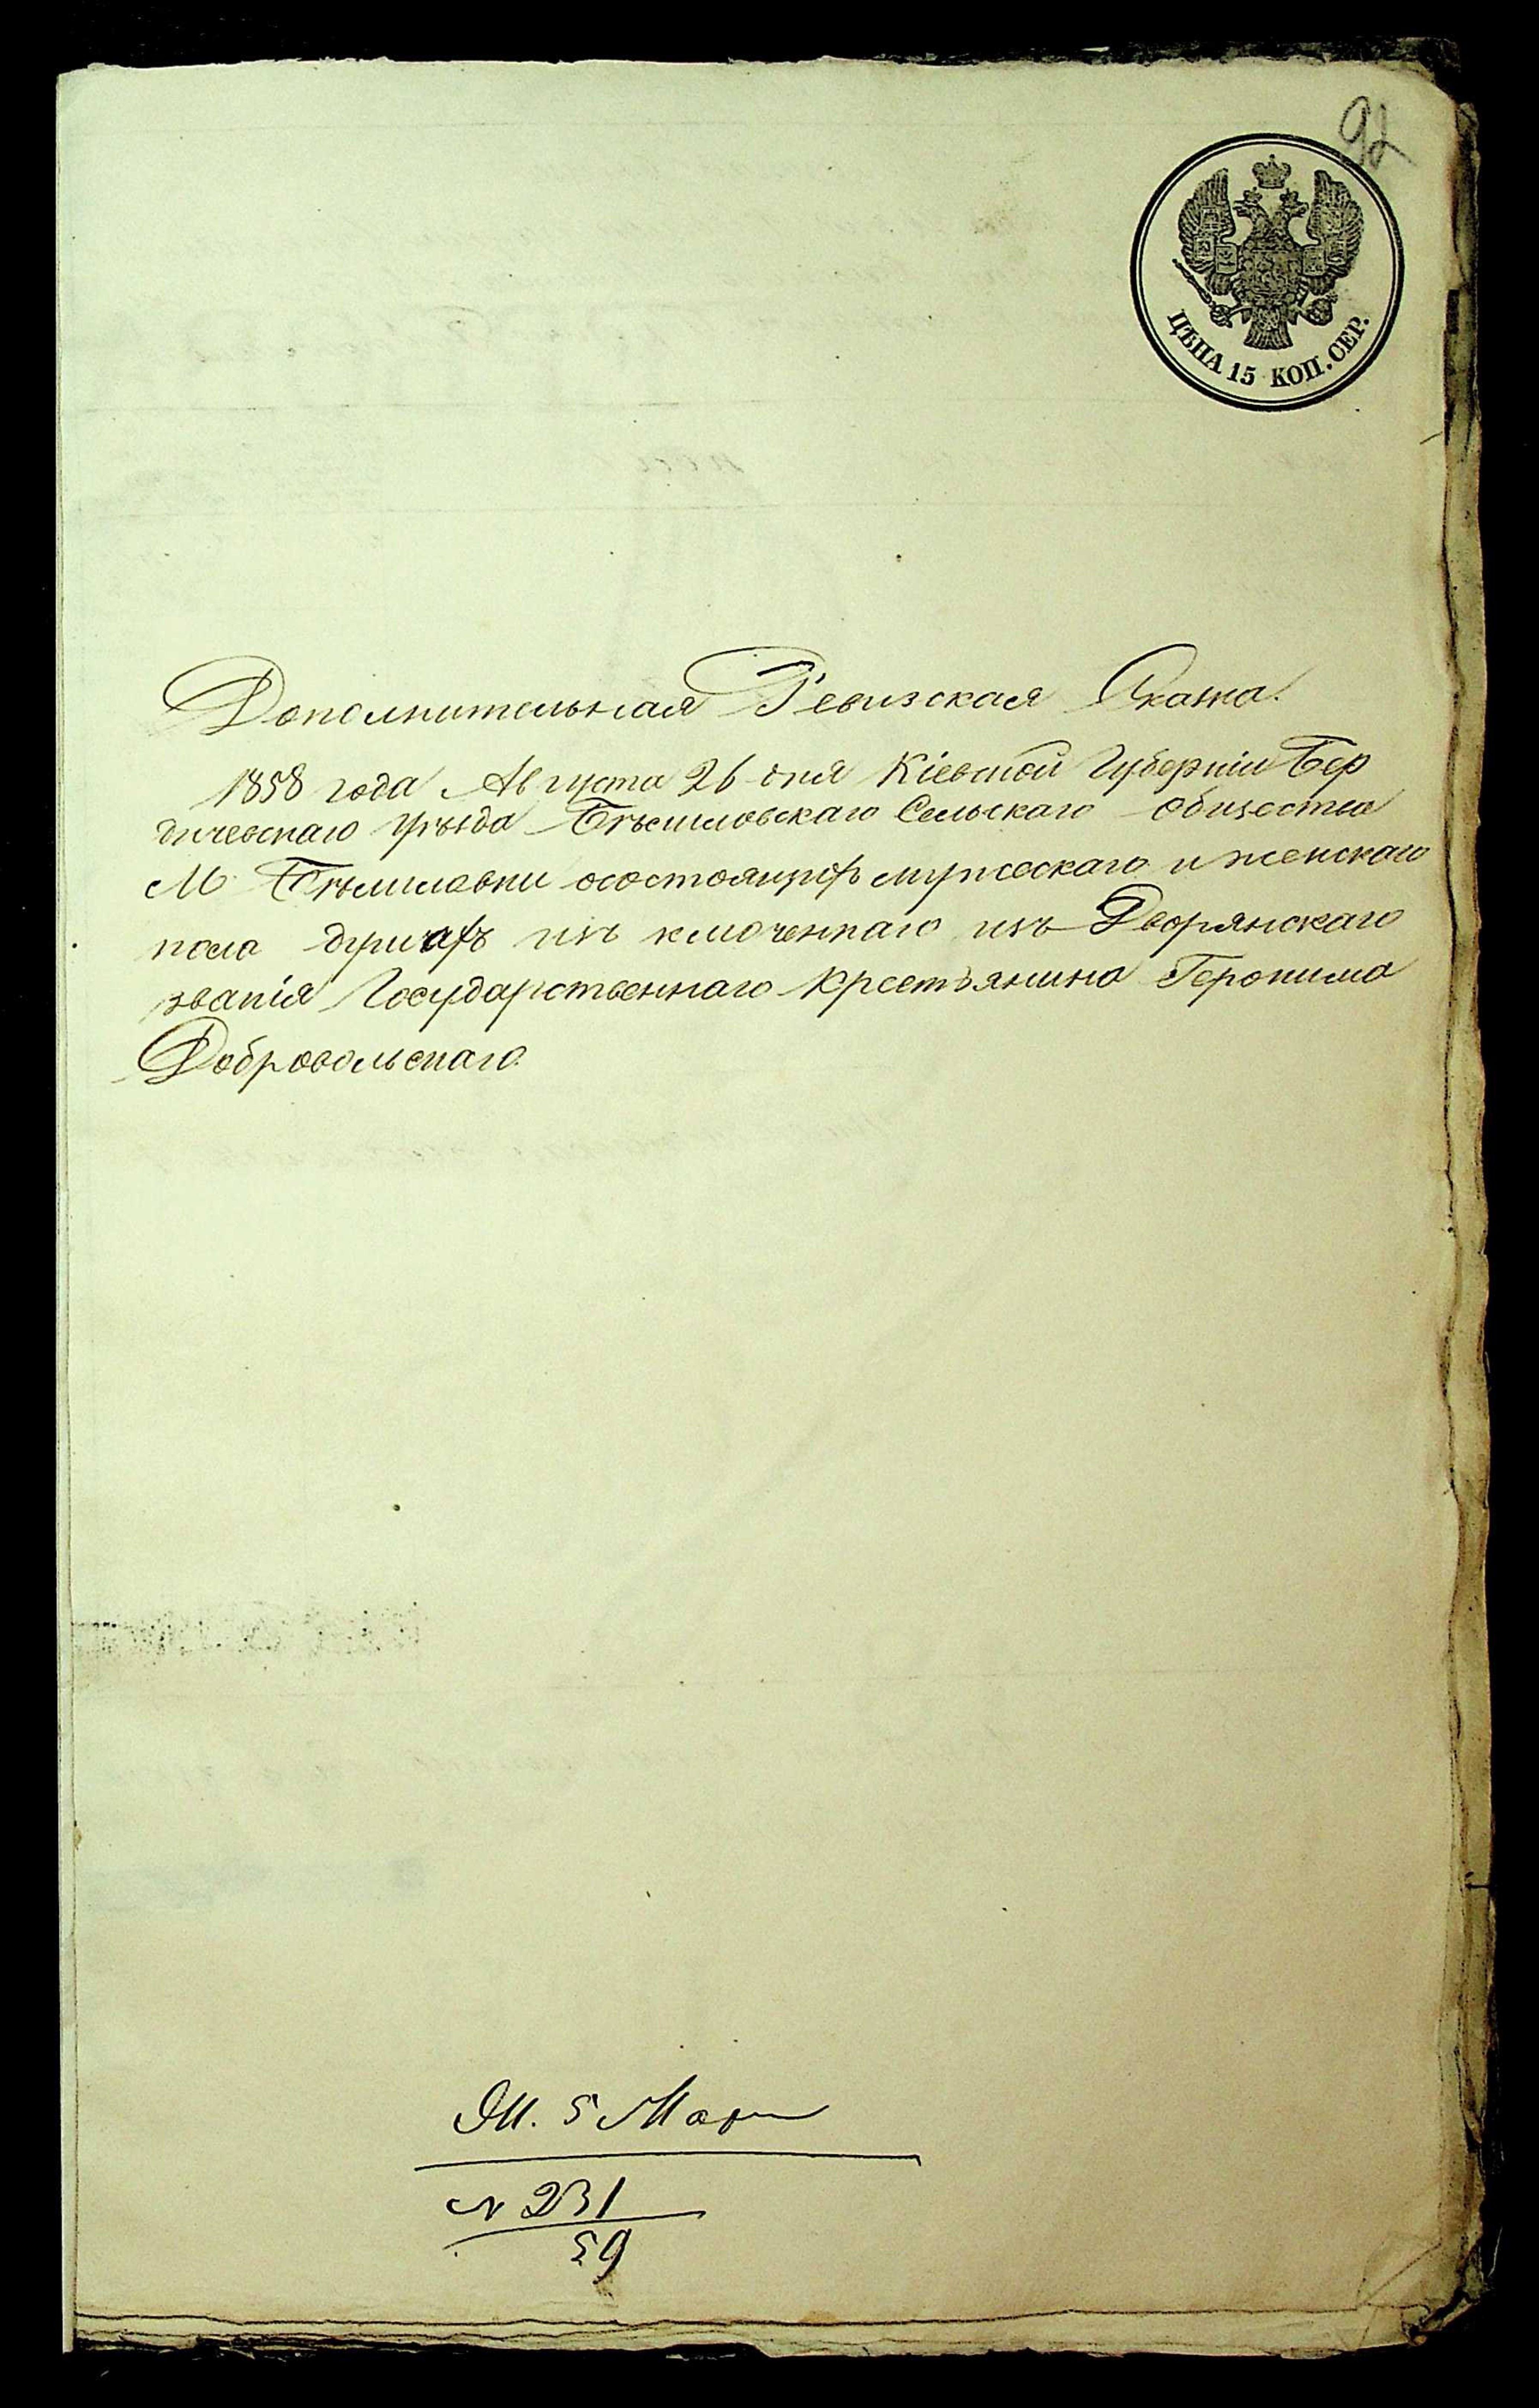 92
ЦѢНА 15 КОП. СЕР.
Дополнительная Ревизская Сказка.
1858 года Августа 26 дня Кіевской Губерніи Бер
дичевскаго Уѣзда Бѣлиловскаго Сельскаго Общества
М. Бѣлиловки осостоящихъ мужескаго и женскаго
пола душахъ изъ ключеннаго изъ Дворянскаго
званія Государственнаго крестьянина Геронима
Добровольскаго.
5 Мар
№ 231
59